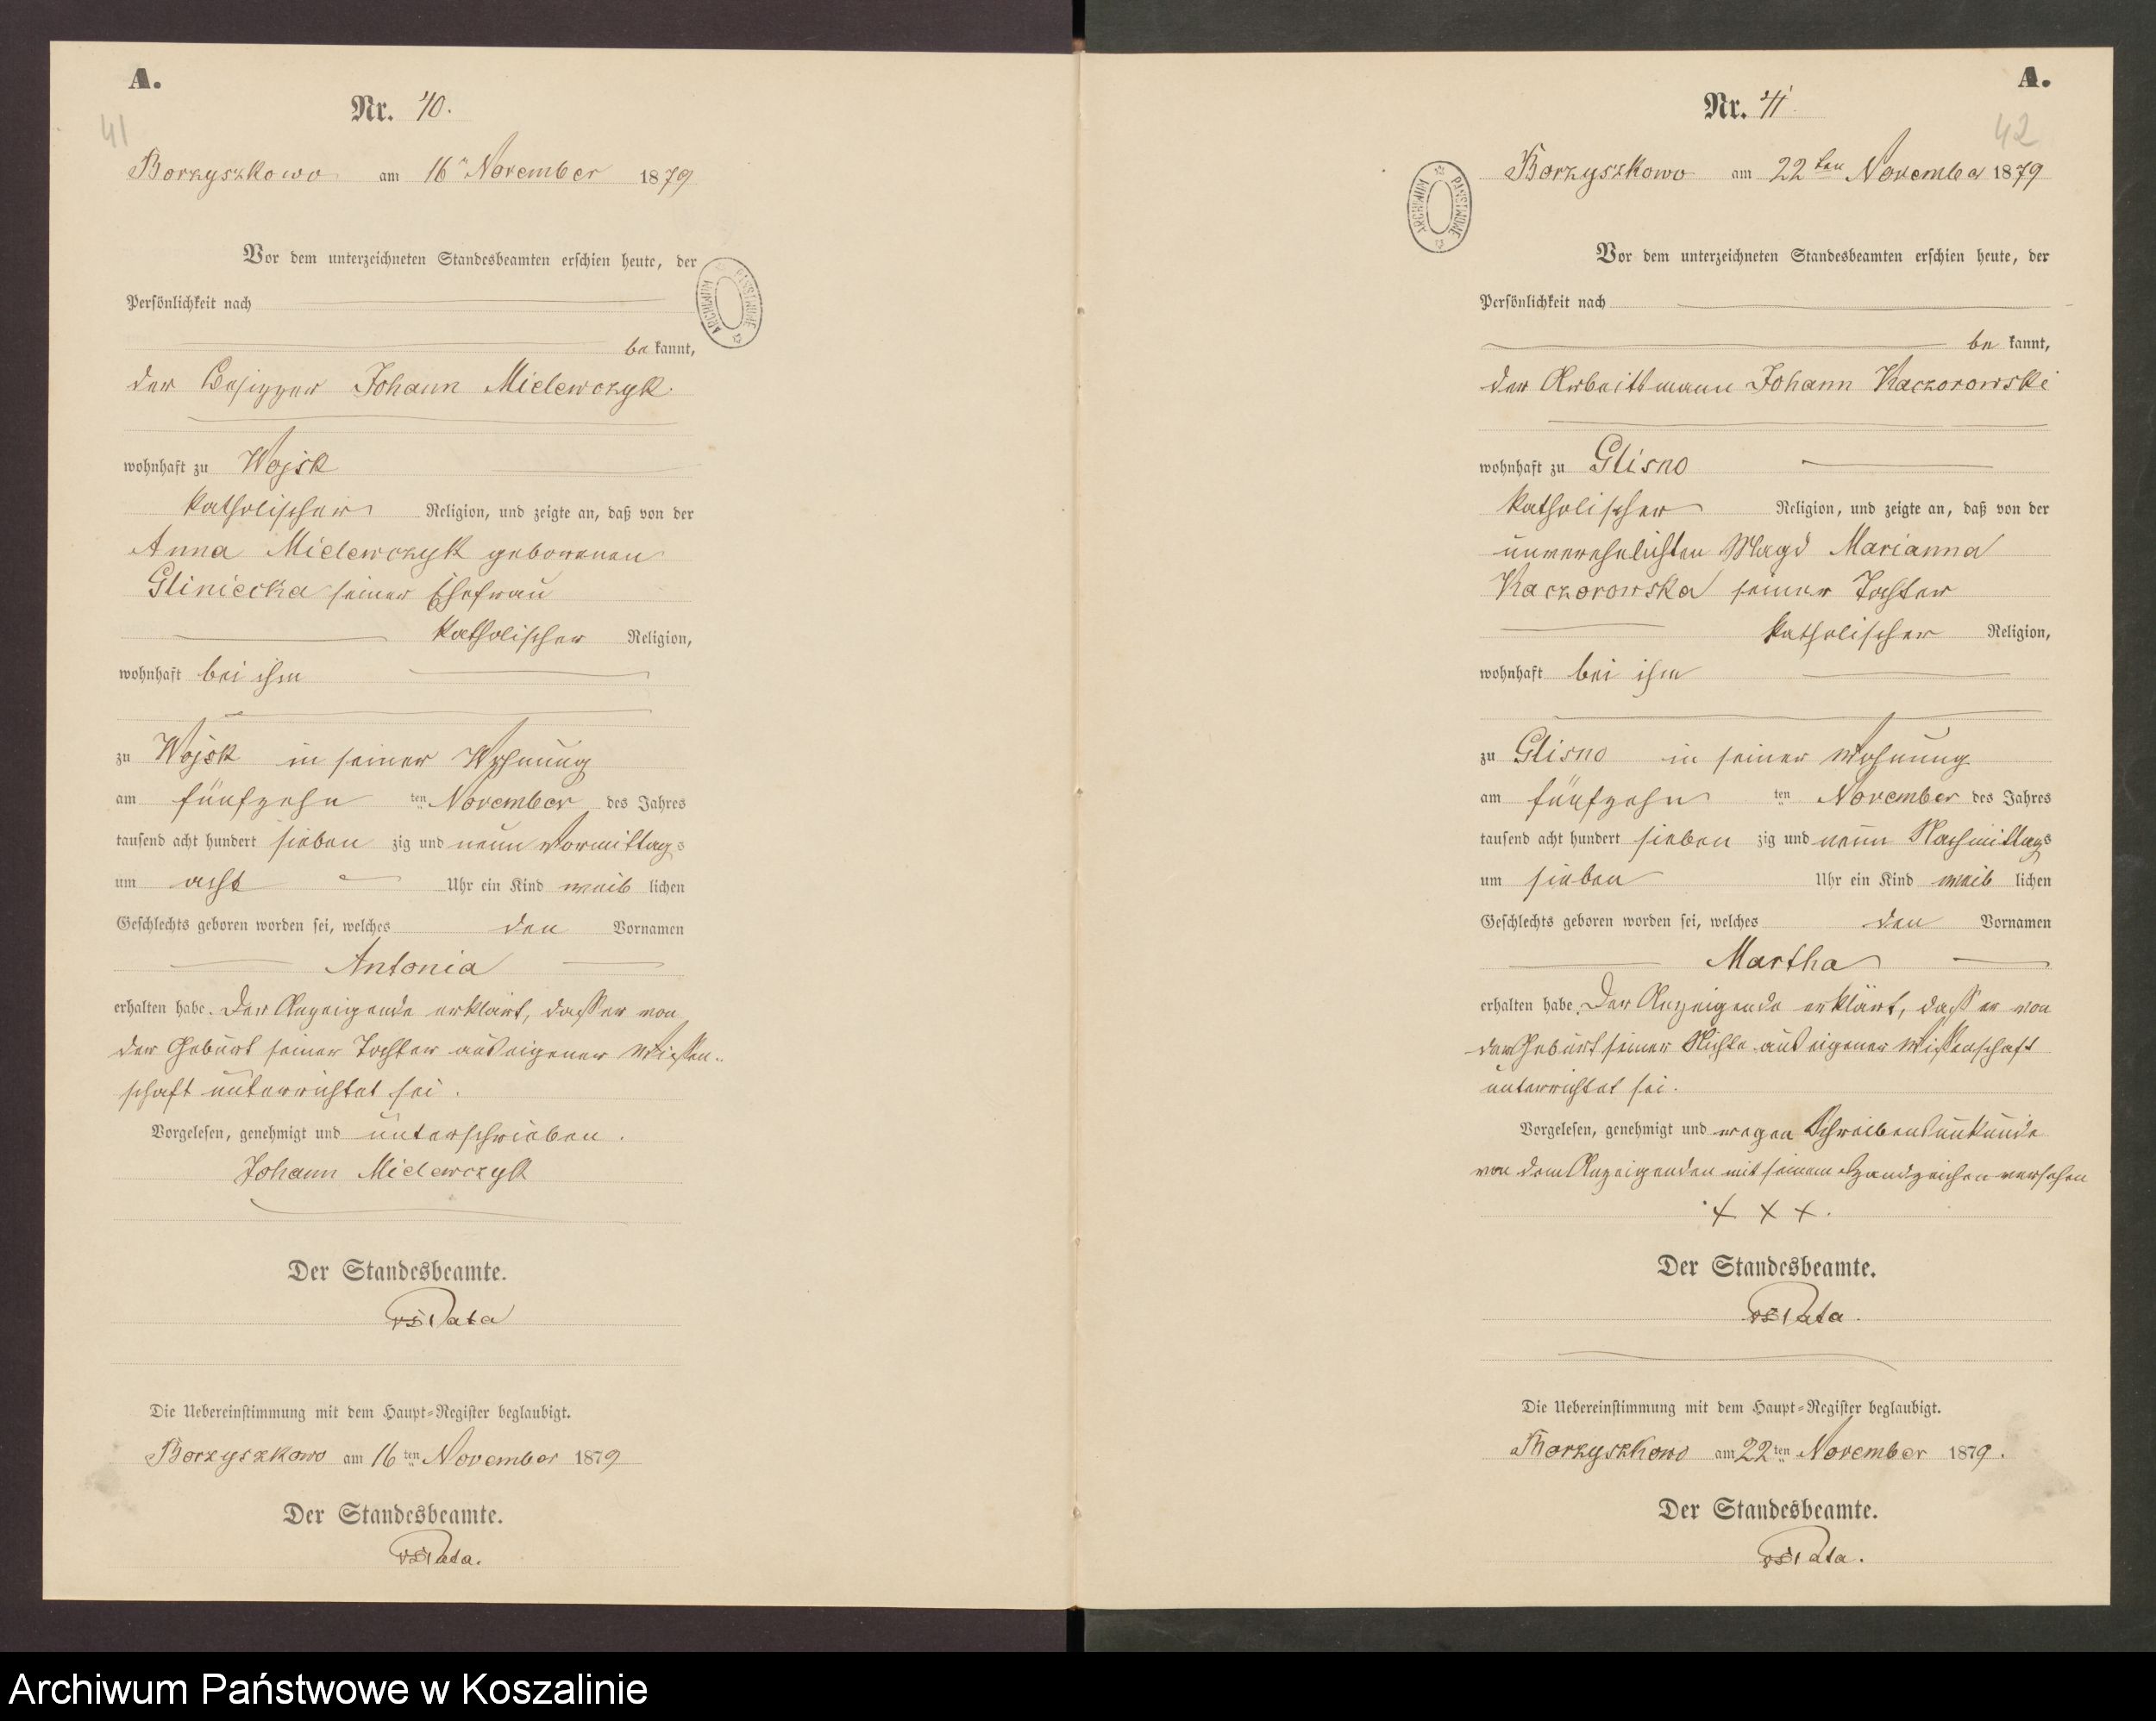 A.
Nr. 40.
41
Borzyszkowo am 16ⁿ November 1879
Vor dem unterzeichneten Standesbeamten erschien heute, der
Persönlichkeit nach
be kannt,
der Besitzer Johann Mielewczyk
wohnhaft zu Wojsk
katholischer Religion, und zeigte an, daß von der
Anna Mielewczyk geborenen
Gliniecka seiner Ehefrau
katholischer Religion,
wohnhaft bei ihm
zu Wojsk in seiner Wohnung
am fünfzehn ten November des Jahres
tausend acht hundert sieben zig und neun Vormittags
um acht Uhr ein Kind weib lichen
Geschlechts geboren worden sei, welches den Vornamen
Antonia
erhalten habe. Der Anzeigende erklärt, dass er von
der Geburt seiner Tochter aus eigener Wissen-
schaft unterrichtet sei.
Vorgelesen, genehmigt und unterschrieben.
Johann Mielewczyk
Der Standesbeamte.
Pata
Die Uebereinstimmung mit dem Haupt-Register beglaubigt.
Borzyszkowo am 16 ten November 1879
Der Standesbeamte.
Pata.
ARCHIWUM PAŃSTWOWE
A.
Nr. 41.
42
Borzyszkowo am 22 ten November 1879
ARCHIWUM PAŃSTWOWE
Vor dem unterzeichneten Standesbeamten erschien heute, der
Persönlichkeit nach
be kannt,
der Arbeitsmann Johann Kaczorowski
wohnhaft zu Glisno
katholischer Religion, und zeigte an, daß von der
unverehelichten Magd Marianna
Kaczorowska seiner Tochter
katholischer Religion,
wohnhaft bei ihm
zu Glisno in seiner Wohnung
am fünfzehn ten November des Jahres
tausend acht hundert sieben zig und neun Nachmittags
um sieben Uhr ein Kind weib lichen
Geschlechts geboren worden sei, welches den Vornamen
Martha
erhalten habe. Der Anzeigende erklärt, dass er von
der Geburt seiner Nichte aus eigener Wissenschaft
unterrichtet sei.
Vorgelesen, genehmigt und wegen Schreibensunkunde
von dem Anzeigenden mit seinem Handzeichen versehen
+ + +.
Der Standesbeamte.
Pata.
Die Uebereinstimmung mit dem Haupt-Register beglaubigt.
Borzyszkowo am 22 ten November 1879.
Der Standesbeamte.
Pata.
Archiwum Państwowe w Koszalinie